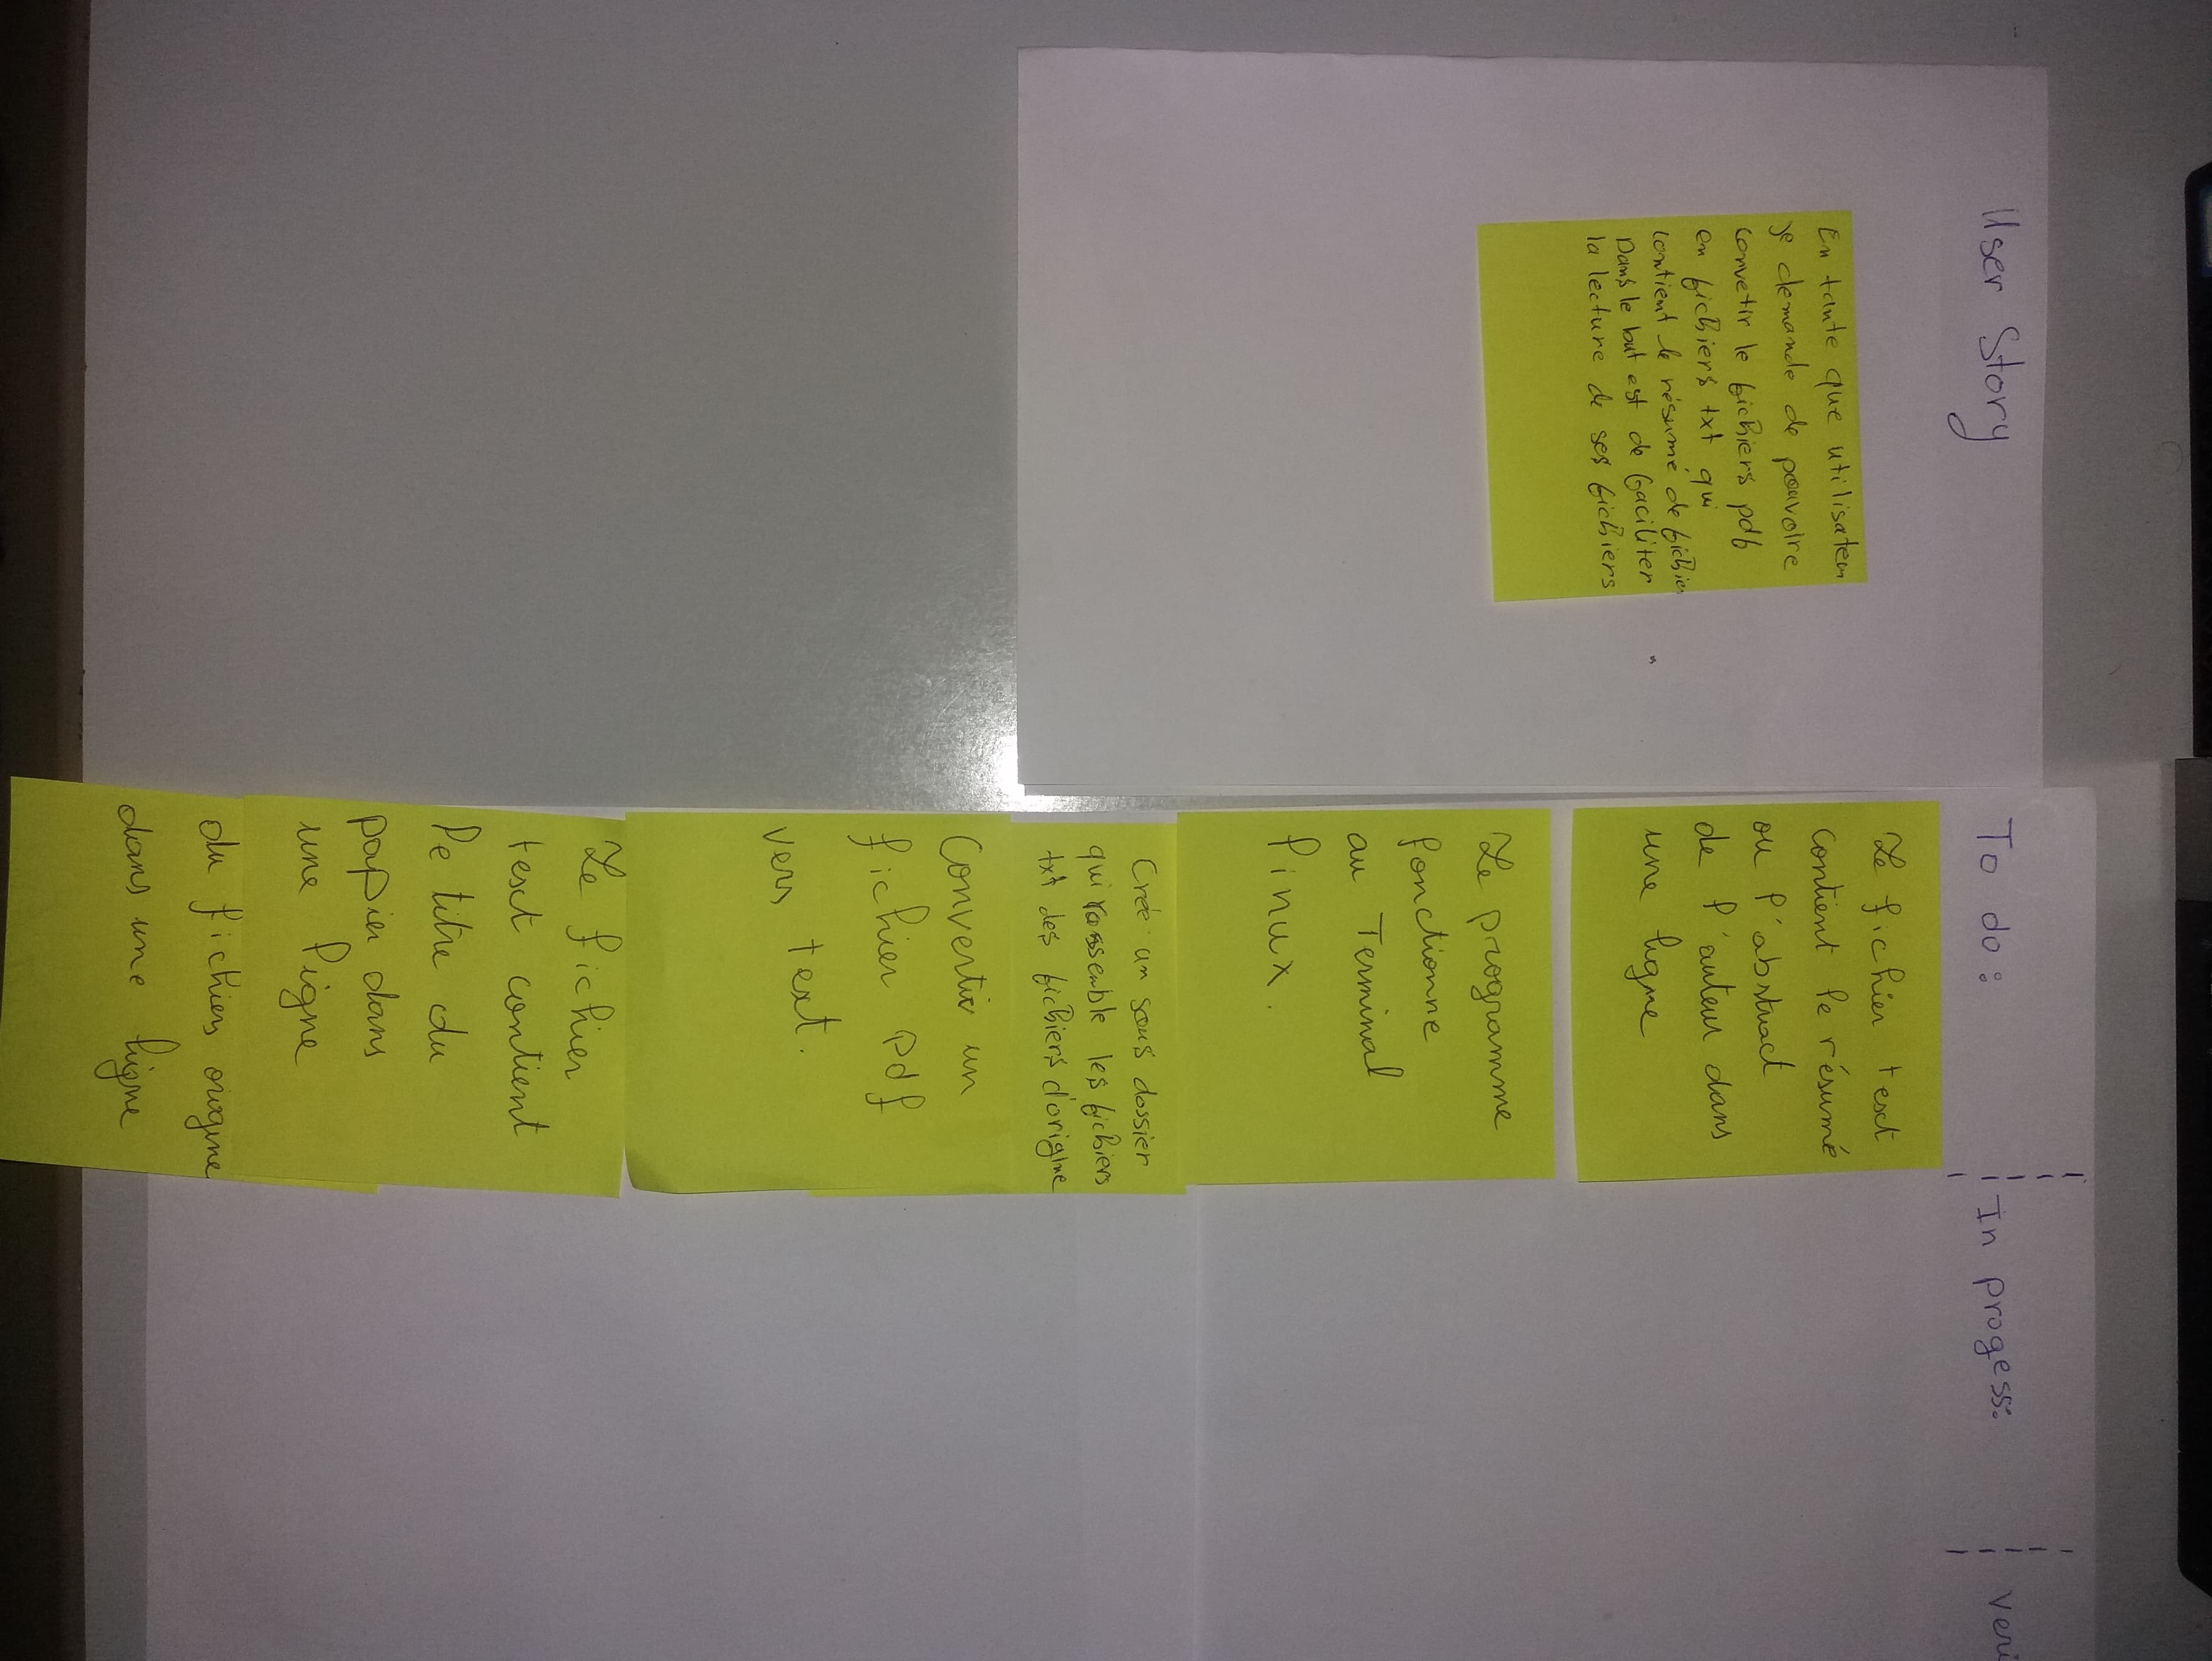 User Story
En tante que utilisateur
je demande de pouvoire
convetir le fichiers pdf
en fichiers txt qui
contient le résumé de fichier
Dans le but est de faciliter
la lecture de ses fichiers
To do:
Le fichier text
contient le résumé
ou l'abstract
de l'auteur dans
une ligne
Le programme
fonctionne
au Terminal
linux.
Creé un sous dossier
qui rassemble les fichiers
txt des fichiers d'origine
Convertir un
fichier pdf
vers text.
Le fichier
text contient
le titre du
papier dans
une ligne
du fichiers origine
dans une ligne
In progess:
veri